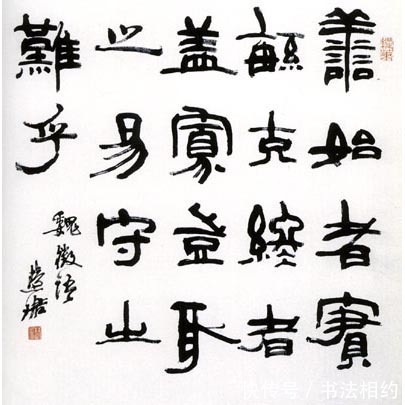 譱始者實
緐克終者
蓋寡豈取
之易守之
難乎
魏徵語
快传号 / 书法相约